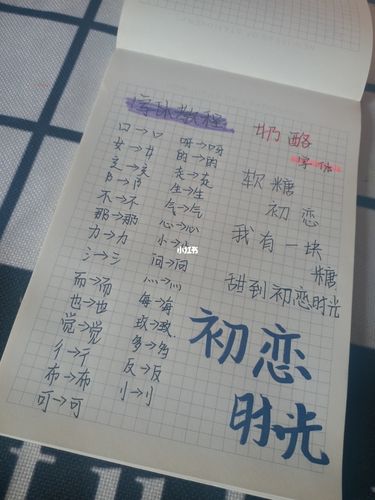 字体教程
口→口
女→女
辶→辶
阝→阝
不→不
那→那
力→力
氵→氵
而→而
也→也
觉→觉
彳→彳
布→布
可→可
呀→呀
的→的
炎→炎
生→生
气→气
心→心
小→小
问→问
灬→灬
每→每
玫→玫
多→多
反→反
刂→刂
小红书
奶酪
字体
软糖
初恋
我有一块
糖
甜到初恋时光
初恋
时光